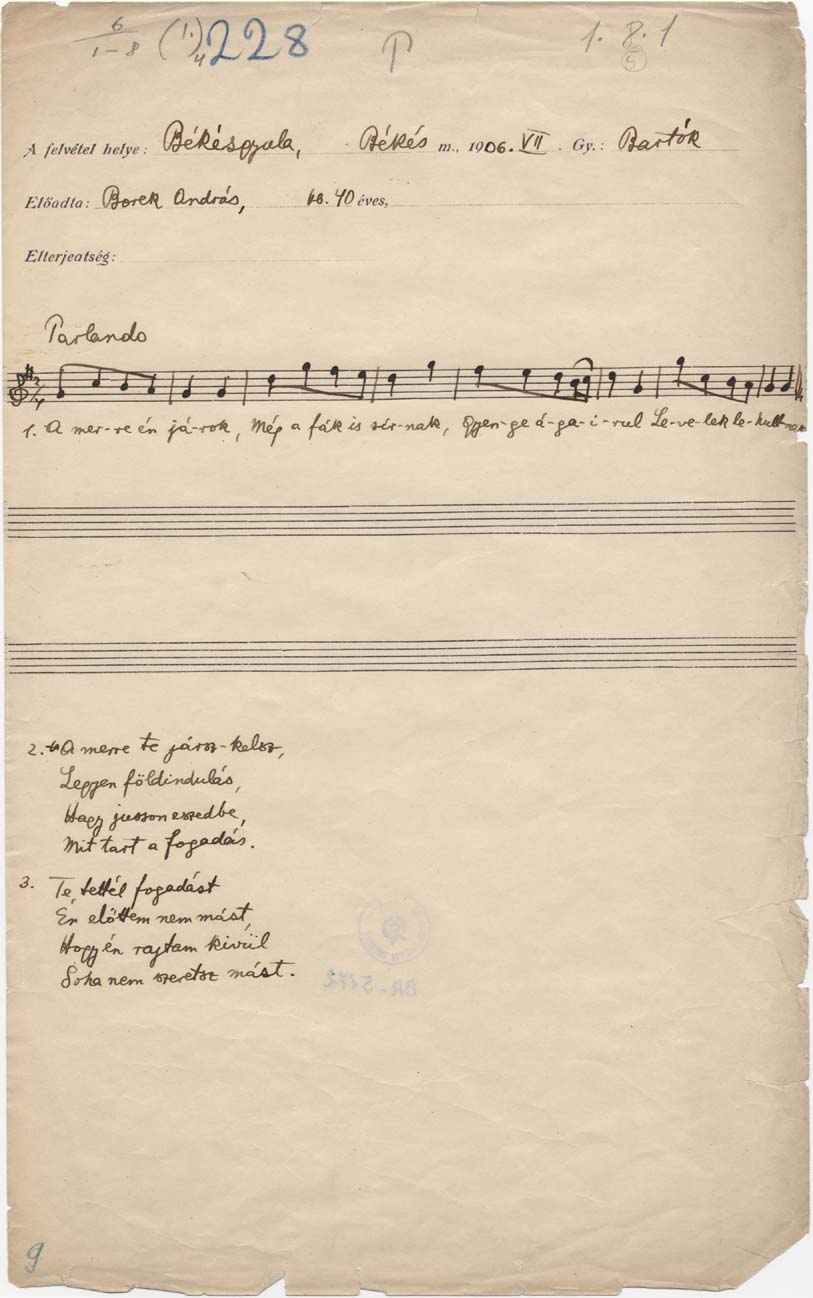 6
1-8 (1.)4 228 P 1. 8. 1
5
A felvétel helye: Békésgyula, Békés m., 1906. VII. Gy.: Bartók
Előadta: Borek András, kb. 40 éves,
Elterjeatség:
Parlando
2/4
1. A mer-re én já-rok, Még a fák is sír-nak, Gyen-ge á-ga-i-rul Le-ve-lek le-hull-nak
2. A merre te jársz-kelsz,
Legyen földindulás,
Hagy jusson eszedbe,
Mit tart a fogadás.
3. Te tettél fogadást
Én előttem nem mást,
Hogy én rajtam kivül
Soha nem szeretsz mást.
BR-5172
9